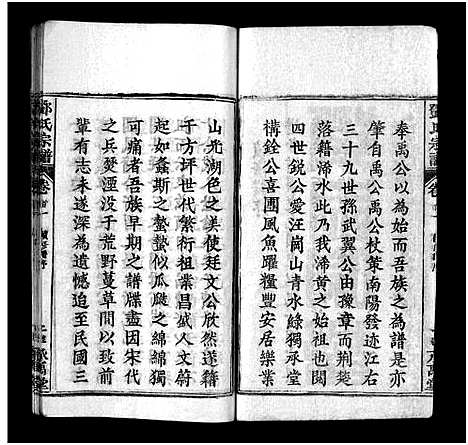 奉禹公以為始而吾族之為譜是亦
肇自禹公禹公杖策南陽發迹江右
三十九世孫武翼公由豫章而荆楚
落籍浠水此乃我浠黄之始祖也閱
四世銳公愛汪崗山青水綠獨承堂
構銓公喜團風魚躍糧豐安居樂業
山光湖色之美使廷文公欣然遂籍
千方坪世代繁衍業昌盛人文蔚
起如螽斯之蟄蟄似瓜瓞之綿綿獨
可痛者吾族早期之譜牒盡因宋代
之兵燹湮没于荒野蔓草間以致前
輩有志未遂深為遺憾追自民國三
鄧氏宗譜
卷首一